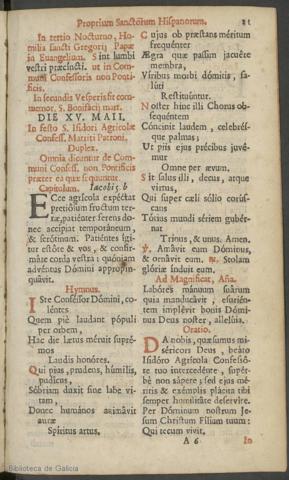 Proprium Sanctórum Hispanorum. 81
In tertio Nocturno, Ho-
milia sancti Gregorij Papæ
in Evangelium. Sint lumbi
vestri præcincti. ut in Com-
muni Confessoris non Ponti-
ficis.
In secundis Vesperis fit com-
memor. S. Bonifacij mart.
DIE XV. MAII,
In festo S. Isidori Agricolæ
Confess. Matriti Patroni,
Duplex.
Omnia dicuntur de Com-
muni Confess. non Pontificis
præter ea quæ sequuntur.
Capitulum. Iacobi 5. b
ECce agricola expéctat
pretiósum fructum ter-
ræ, patiénter ferens do-
nec accipiat temporáneum,
& serótinum. Patiéntes igi-
tur estóte & vos, & confir-
máte corda vestra: quóniam
advéntus Dómini appropin-
quávit.
Hymnus.
ISte Conféssor Dómini, co-
léntes
Quem piè laudant pópuli
per orbem,
Hac die lætus méruit suprê-
mos
Laudis honóres.
Qui pius, prudens, húmilis,
pudícus,
Sóbriam duxit sine labe vi-
tam,
Donec humános animávit
auræ
Spíritus artus.
Cujus ob præstans méritum
frequénter
Ægra quæ passim jacuére
membra,
Víribus morbi dómitis, sa-
lúti
Restituúntur.
Noster hinc illi Chorus ob-
sequéntem
Cóncinit laudem, celebrés-
que palmas;
Ut piis ejus précibus juvé-
mur
Omne per ævum.
Sit salus illi, decus, atque
virtus,
Qui super cæli sólio corús-
cans
Totíus mundi sériem gubér-
nat
Trinus, & unus. Amen.
℣. Amávit eum Dóminus,
& ornávit eum. ℟. Stolam
glóriæ índuit eum.
Ad Magnificat, Aña.
Labóres mánuum suárum
quia manducávit, esurién-
tem implévit bonis Dómi-
nus Deus noster, allelúia.
Oratio.
DA nobis, quǽsumus mi-
séricors Deus, beáto
Isidóro Agrícola Confessó-
re tuo intercedénte, supér-
bè non sápere; sed ejus mé-
ritis & exémplis plácita tibi
semper humilitáte deservíre.
Per Dóminum nostrum Je-
sum Christum Fílium tuum:
Qui tecum vivit.
A 6 In
Biblioteca de Galicia